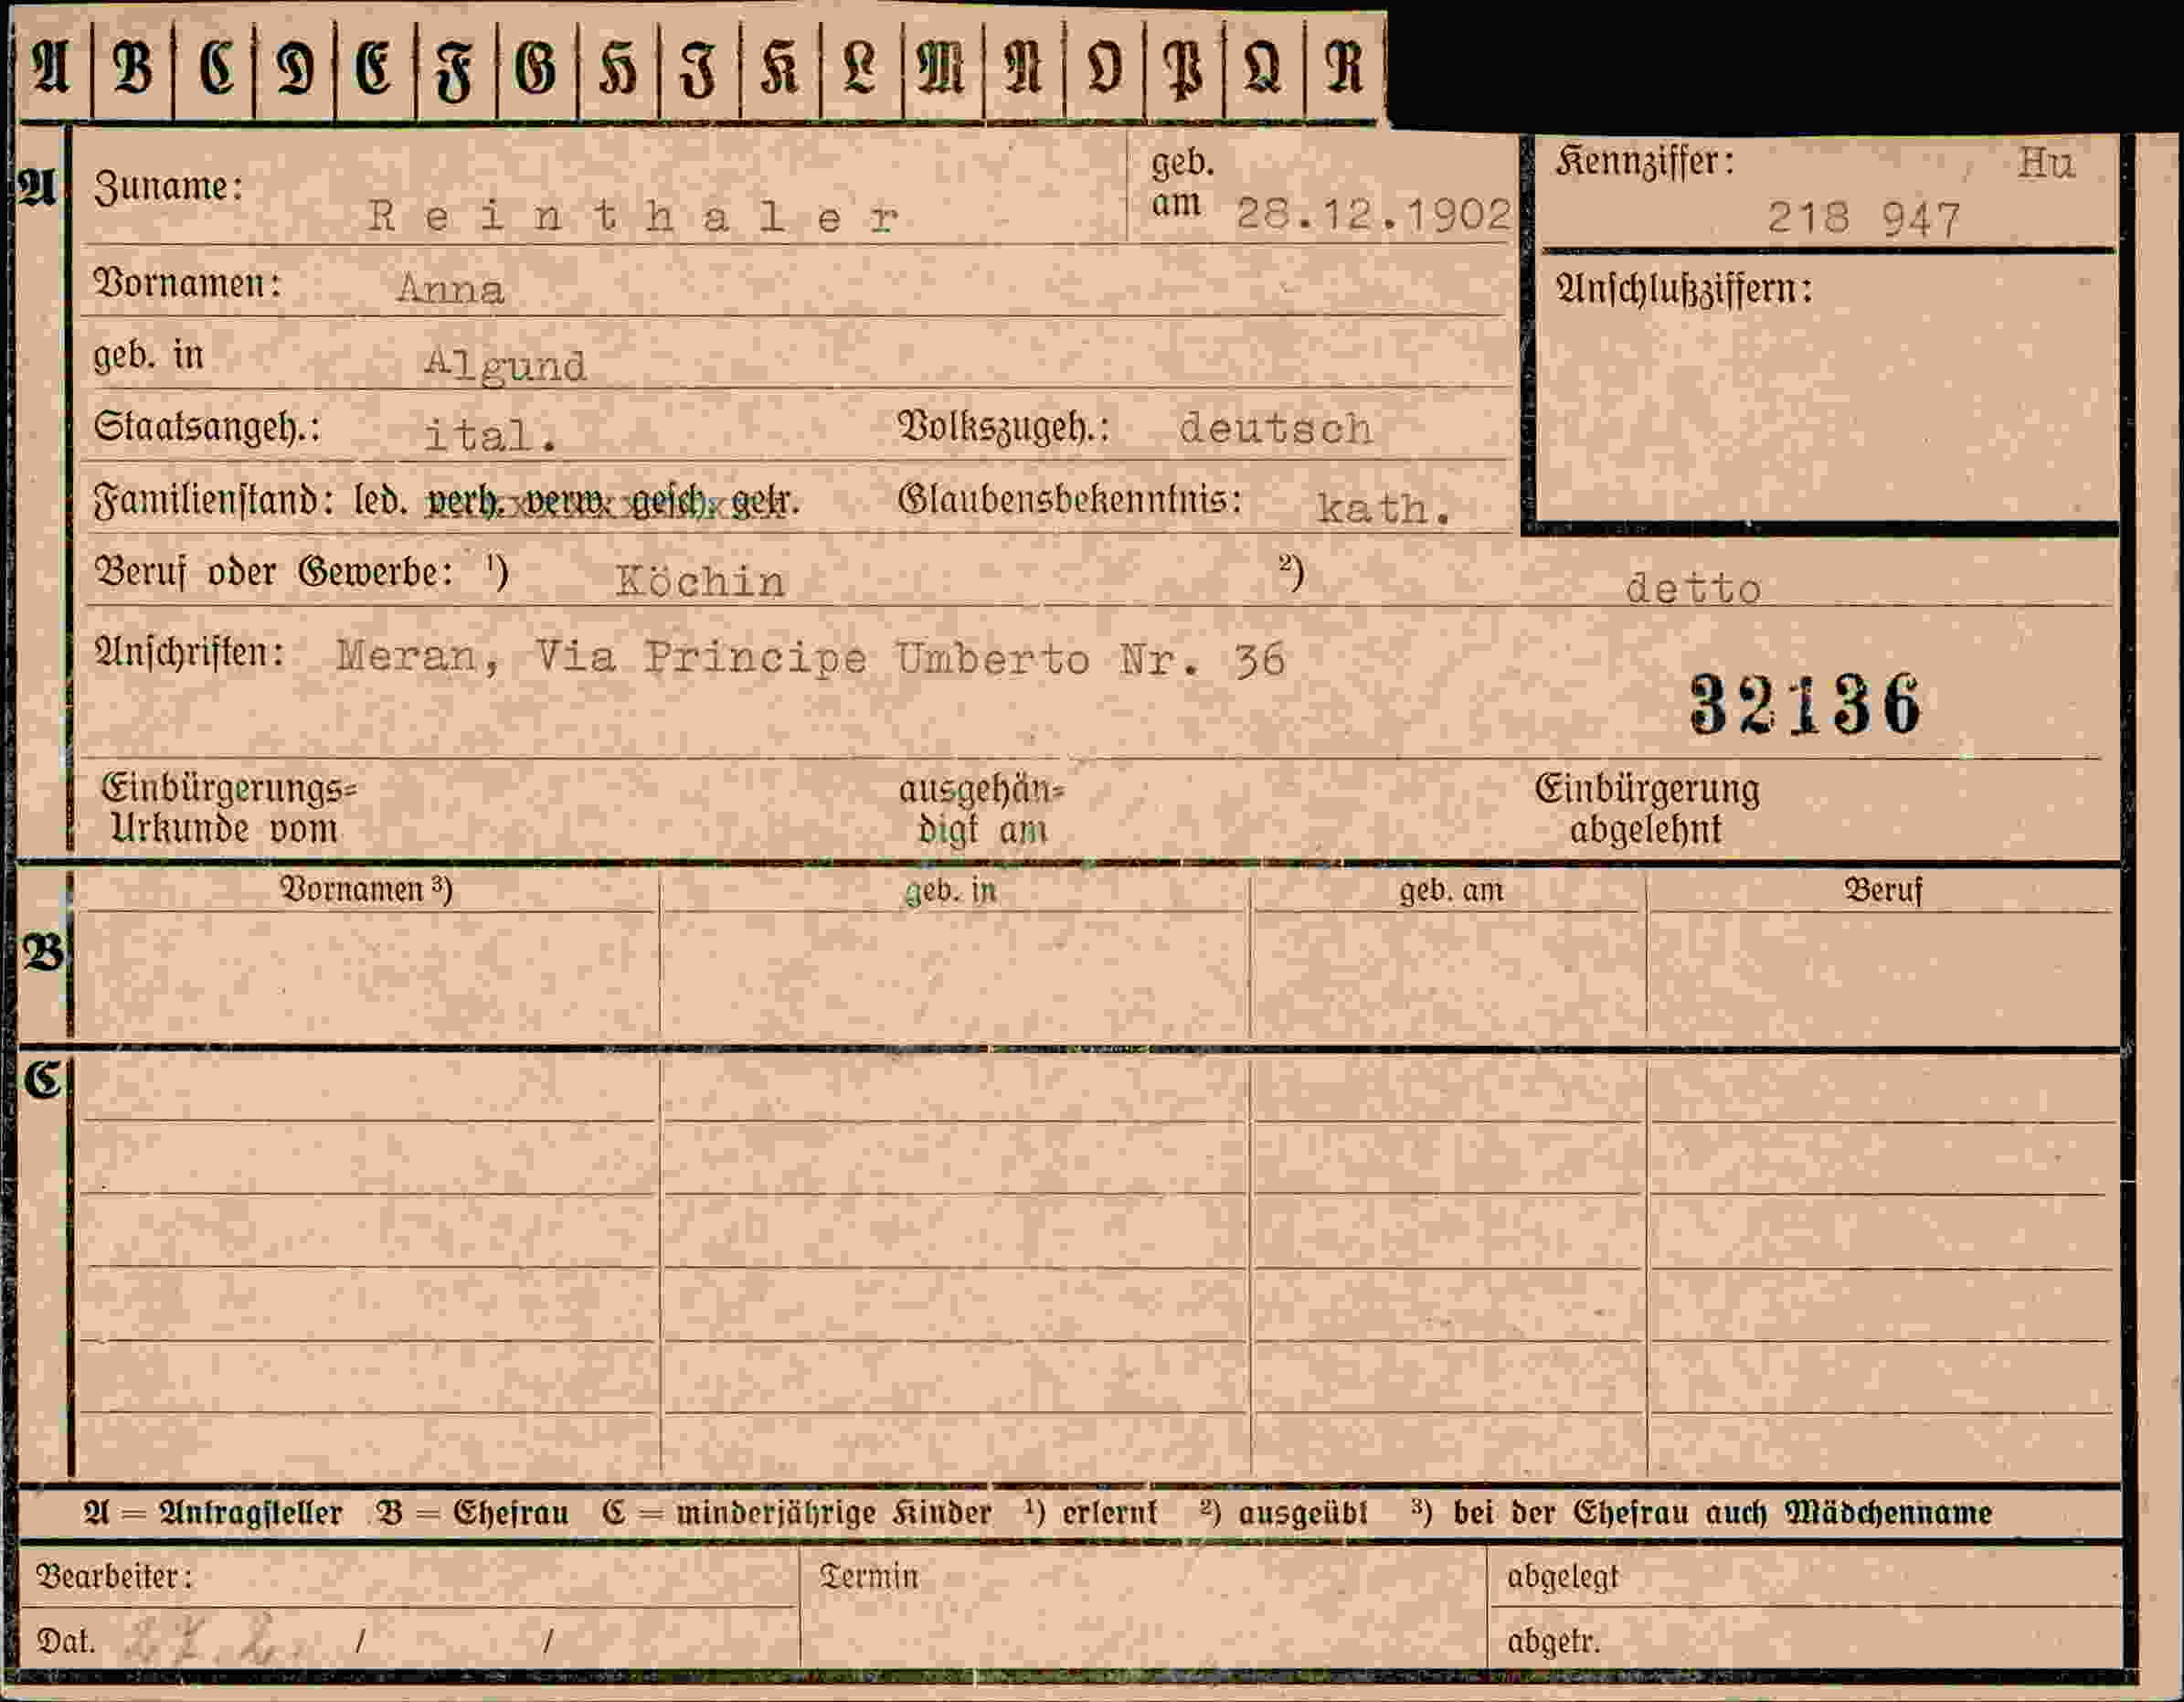 A B C D E F G H I K L M N O P Q R
A Zuname: Reinthaler geb. am 28.12.1902 Kennziffer: Hu
218 947
Vornamen: Anna Anschlußziffern:
geb. in Algund
Staatsangeh.: ital. Volkszugeh.: deutsch
Familienstand: led. verh. verw. gesch. getr. Glaubensbekenntnis: kath.
Beruf oder Gewerbe: ¹) Köchin ²) detto
Anschriften: Meran, Via Principe Umberto Nr. 36
32136
Einbürgerungs= ausgehän= Einbürgerung
Urkunde vom digt am abgelehnt
Vornamen ³) geb. in geb. am Beruf
B
C
A = Antragsteller B = Ehefrau C = minderjährige Kinder ¹) erlernt ²) ausgeübt ³) bei der Ehefrau auch Mädchenname
Bearbeiter: Termin abgelegt
Dat. 27.2. / / abgetr.